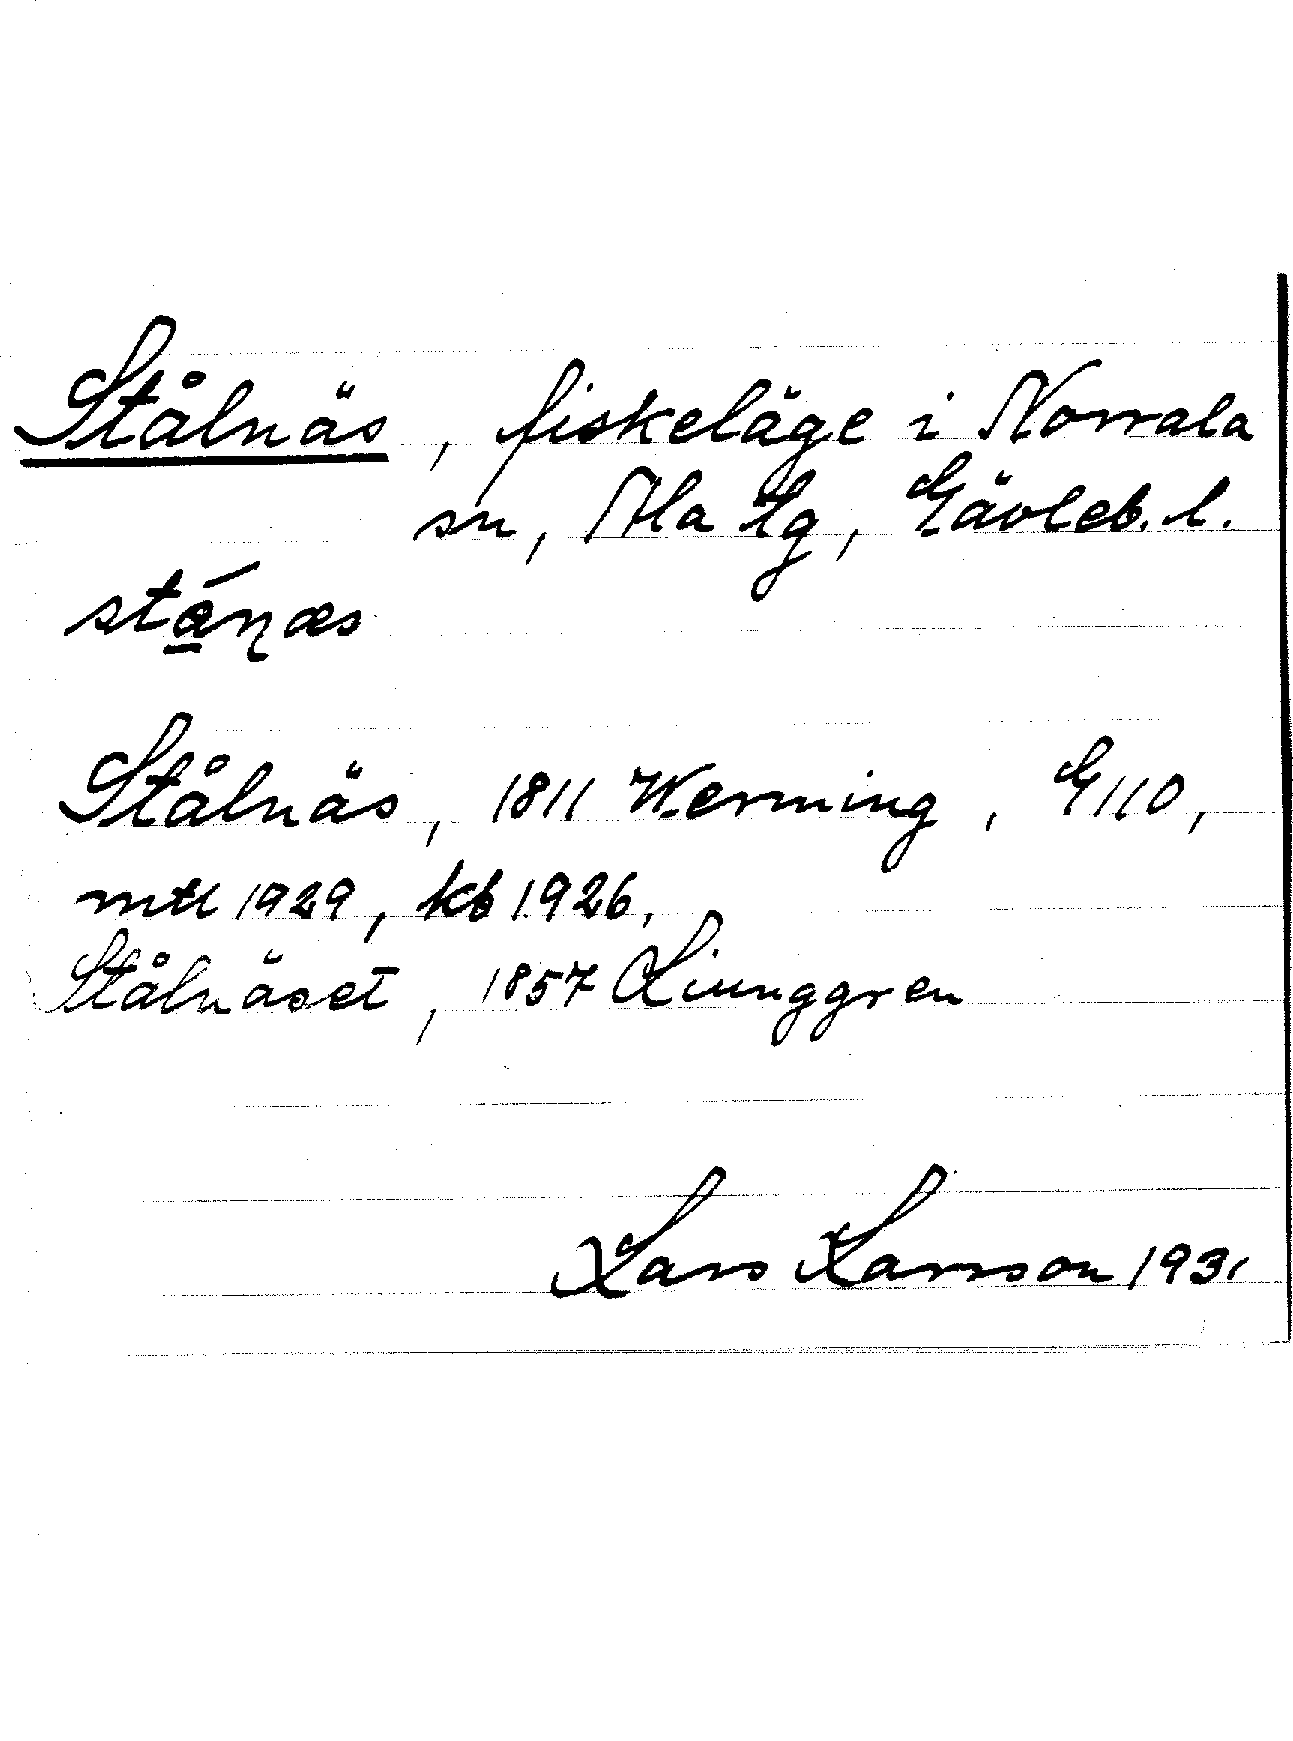 Stålnäs, fiskeläge i Norrala
sn, Ala tg, Gävleb. l.
stá̱ɳæs
Stålnäs, 1811 Werming, G 110,
mtl 1929, kb 1926,
Stålnäset, 1857 Liunggren
Lars Larsson 1931